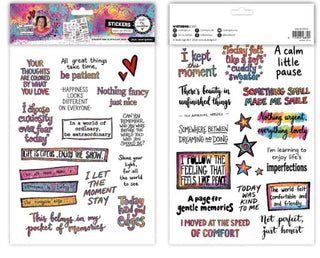 STICKERS
YOUR
THOUGHTS
ARE COLORED
BY WHAT
YOU LOVE
All great things
take time,
be patient
-HAPPINESS
LOOKS
DIFFERENT
ON EVERYONE-
Nothing fancy
just nice
I choose
curiosity
over fear
today
In a world of
ordinary,
be extraordinary
LIFE IS A CIRCUS, ENJOY THE SHOW.
I LET
THE
MOMENT
STAY
Shine your
light,
for all
the world
to see
Today
had soft
edges
This belongs in my
pocket of memories
I kept
this
moment
Today
felt like
a soft
cuddly
sweater
A calm
little
pause
There's beauty in
unfinished things
SOMETHING SMALL
MADE ME SMILE
SOMEWHERE BETWEEN
DREAMING AND DOING
Nothing urgent,
everything lovely
I FOLLOW THE
FEELING THAT
FEELS LIKE PEACE
I'm learning to
enjoy life's
imperfections
A page for
gentle memories
TODAY
WAS
KIND TO
ME
The world felt
Comfortable and
and friendly
I MOVED AT THE SPEED
OF COMFORT
Not perfect,
just honest